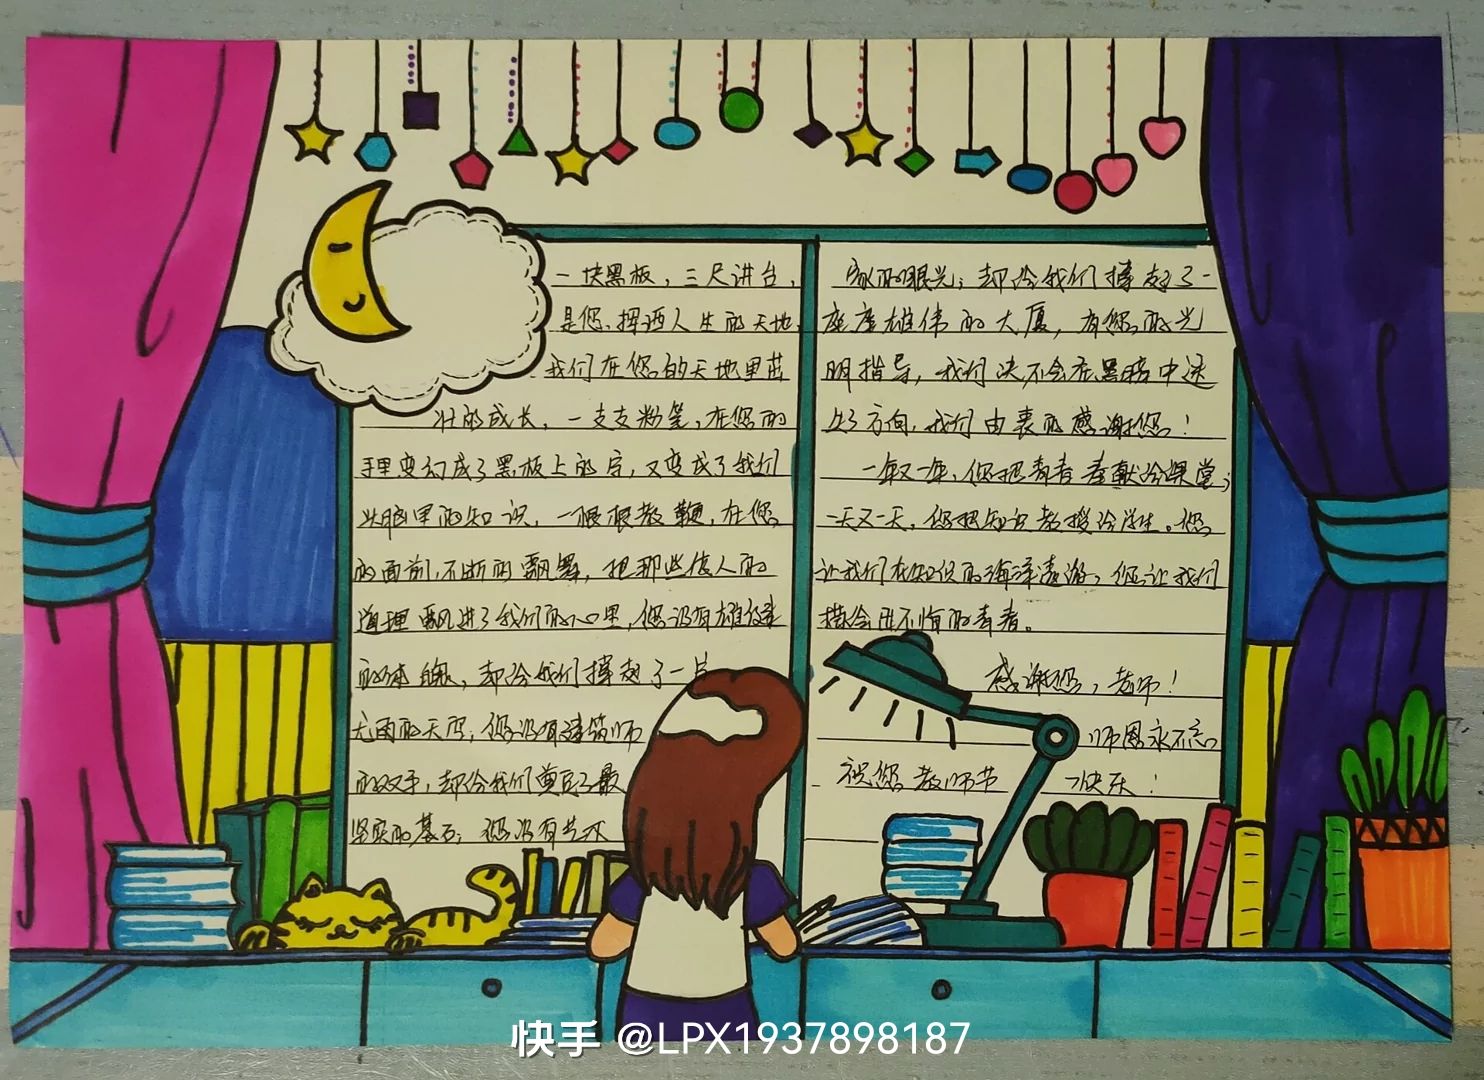 一块黑板，三尺讲台，
是您挥洒人生的天地，
我们在您的天地里茁
壮的成长，一支支粉笔，在您的
手里变幻成了黑板上的字，又变成了我们
头脑里的知识，一根根教鞭，在您
的面前，不断的飘舞，把那些使人的
道理飘进了我们的心里，您没有雄健
的体魄，却给我们撑起了一片
无雨的天空；您没有建筑师
的双手，却给我们奠定了最
坚实的基石；您没有艺术
家的眼光；却给我们撑起了一
座座雄伟的大厦，有您的光
明指导，我们决不会在黑暗中迷
失了方向，我们由衷的感谢您！
一年又一年，您把青春奉献给课堂；
一天又一天，您把知识教授给学生。您
让我们在知识的海洋遨游，您让我们
描绘出不悔的青春。
感谢您，老师！
师恩永不忘
祝您教师节 快乐！
快手 @LPX1937898187